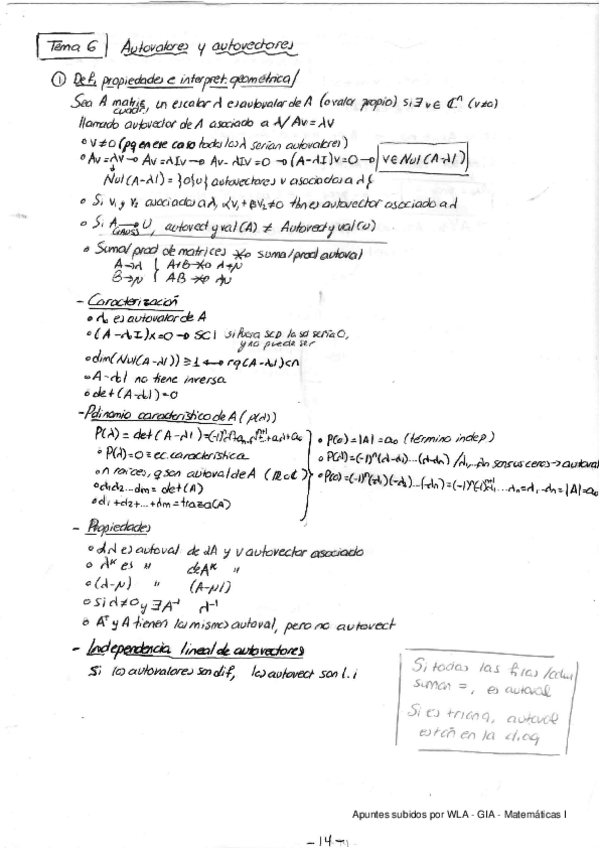 Tema 6 Autovalores y autovectores
① Def, propiedades e interpret. geométrica/
Sea A matriz cuadr, un escalar λ es autovalor de A (o valor propio) si ∃ v ∈ ℂⁿ (v≠0)
llamado autovector de A asociado a λ / Av=λv
• v≠0 (pq en ese caso todos los λ serian autovalores)
• Av=λv → Av=λIv → Av-λIv=0 → (A-λI)v=0 → v∈Nul(A-λI)
Nul(A-λI)={0}∪{autovectores v asociados a λ}
• Si v₁ y v₂ asociados a λ, αv₁+βv₂≠0 tbn es autovector asociado a λ
• Si A → U, autovect y val(A) ≠ Autovect y val(U)
GAUSS
• Suma/prod de matrices suma/prod autoval
A→λ } A+B λ+μ
B→μ } AB λμ
- Caracterización
• λ₀ es autovalor de A
• (A-λI)x=0 → SCI si fuera SCD la sol seria 0, y no puede ser
• dim(Nul(A-λI))≥1 ↔ rg(A-λI)<n
• A-λI no tiene inversa
• det(A-λI)=0
- Polinomio característico de A (p(λ))
P(λ)=det(A-λI)= +a₁λ+a₀
• P(λ)=0 ≡ ec. característica
• n raíces, q son autoval de A
• λ₁λ₂...λm=det(A)
• λ₁+λ₂+...+λm=traza(A)
• P(0)=|A|=a₀ (término indep)
• P(λ)=(-1)ⁿ(λ-λ₁)...(λ-λn) / λ₁...λn son sus ceros → autoval
• P(0)=(-1)ⁿ(-λ₁)(-λ₂)...(-λn)= =λ₁...λn=|A|=a₀
- Propiedades
• αλ es autoval de αA y v autovector asociado
• λᴷ es " de Aᴷ "
• (λ-μ) " (A-μI)
• Si λ≠0 y ∃A⁻¹ λ⁻¹
• Aᵀ y A tienen los mismos autoval, pero no autovect
- Independencia lineal de autovectores
Si los autovalores son dif, los autovect son l.i
Si todas las filas/colum
suman =, es autoval
Si es triang, autoval
están en la diag
Apuntes subidos por WLA - GIA - Matemáticas I
-14-